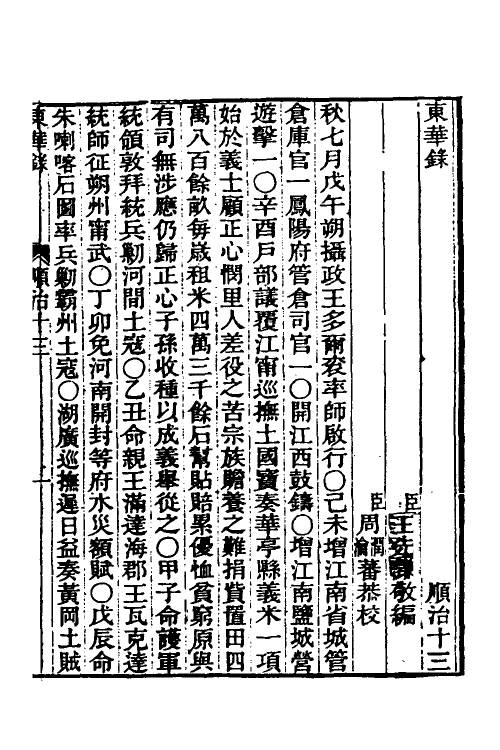 東華錄　順治十三
臣王先謙敬編
臣周潤蕃周瀹蕃恭校
秋七月戊午朔攝政王多爾袞率師啟行〇己未增江南省城管
倉庫官一鳳陽府管倉司官一〇開江西鼓鑄〇增江南鹽城營
遊擊一〇辛酉戶部議覆江甯巡撫土國寶奏華亭縣義米一項
始於義士顧正心憫里人差役之苦宗族贍養之難捐貲置田四
萬八百餘畝每歲租米四萬三千餘石幫貼賠累優恤貧窮原與
有司無涉應仍歸正心子孫收種以成義舉從之〇甲子命護軍
統領敦拜統兵勦河間土寇〇乙丑命親王滿達海郡王瓦克達
統師征朔州甯武〇丁卯免河南開封等府水災額賦〇戊辰命
朱喇喀石圖率兵勦霸州土寇〇湖廣巡撫遲日益奏黃岡土賊
東華錄　順治十三　一